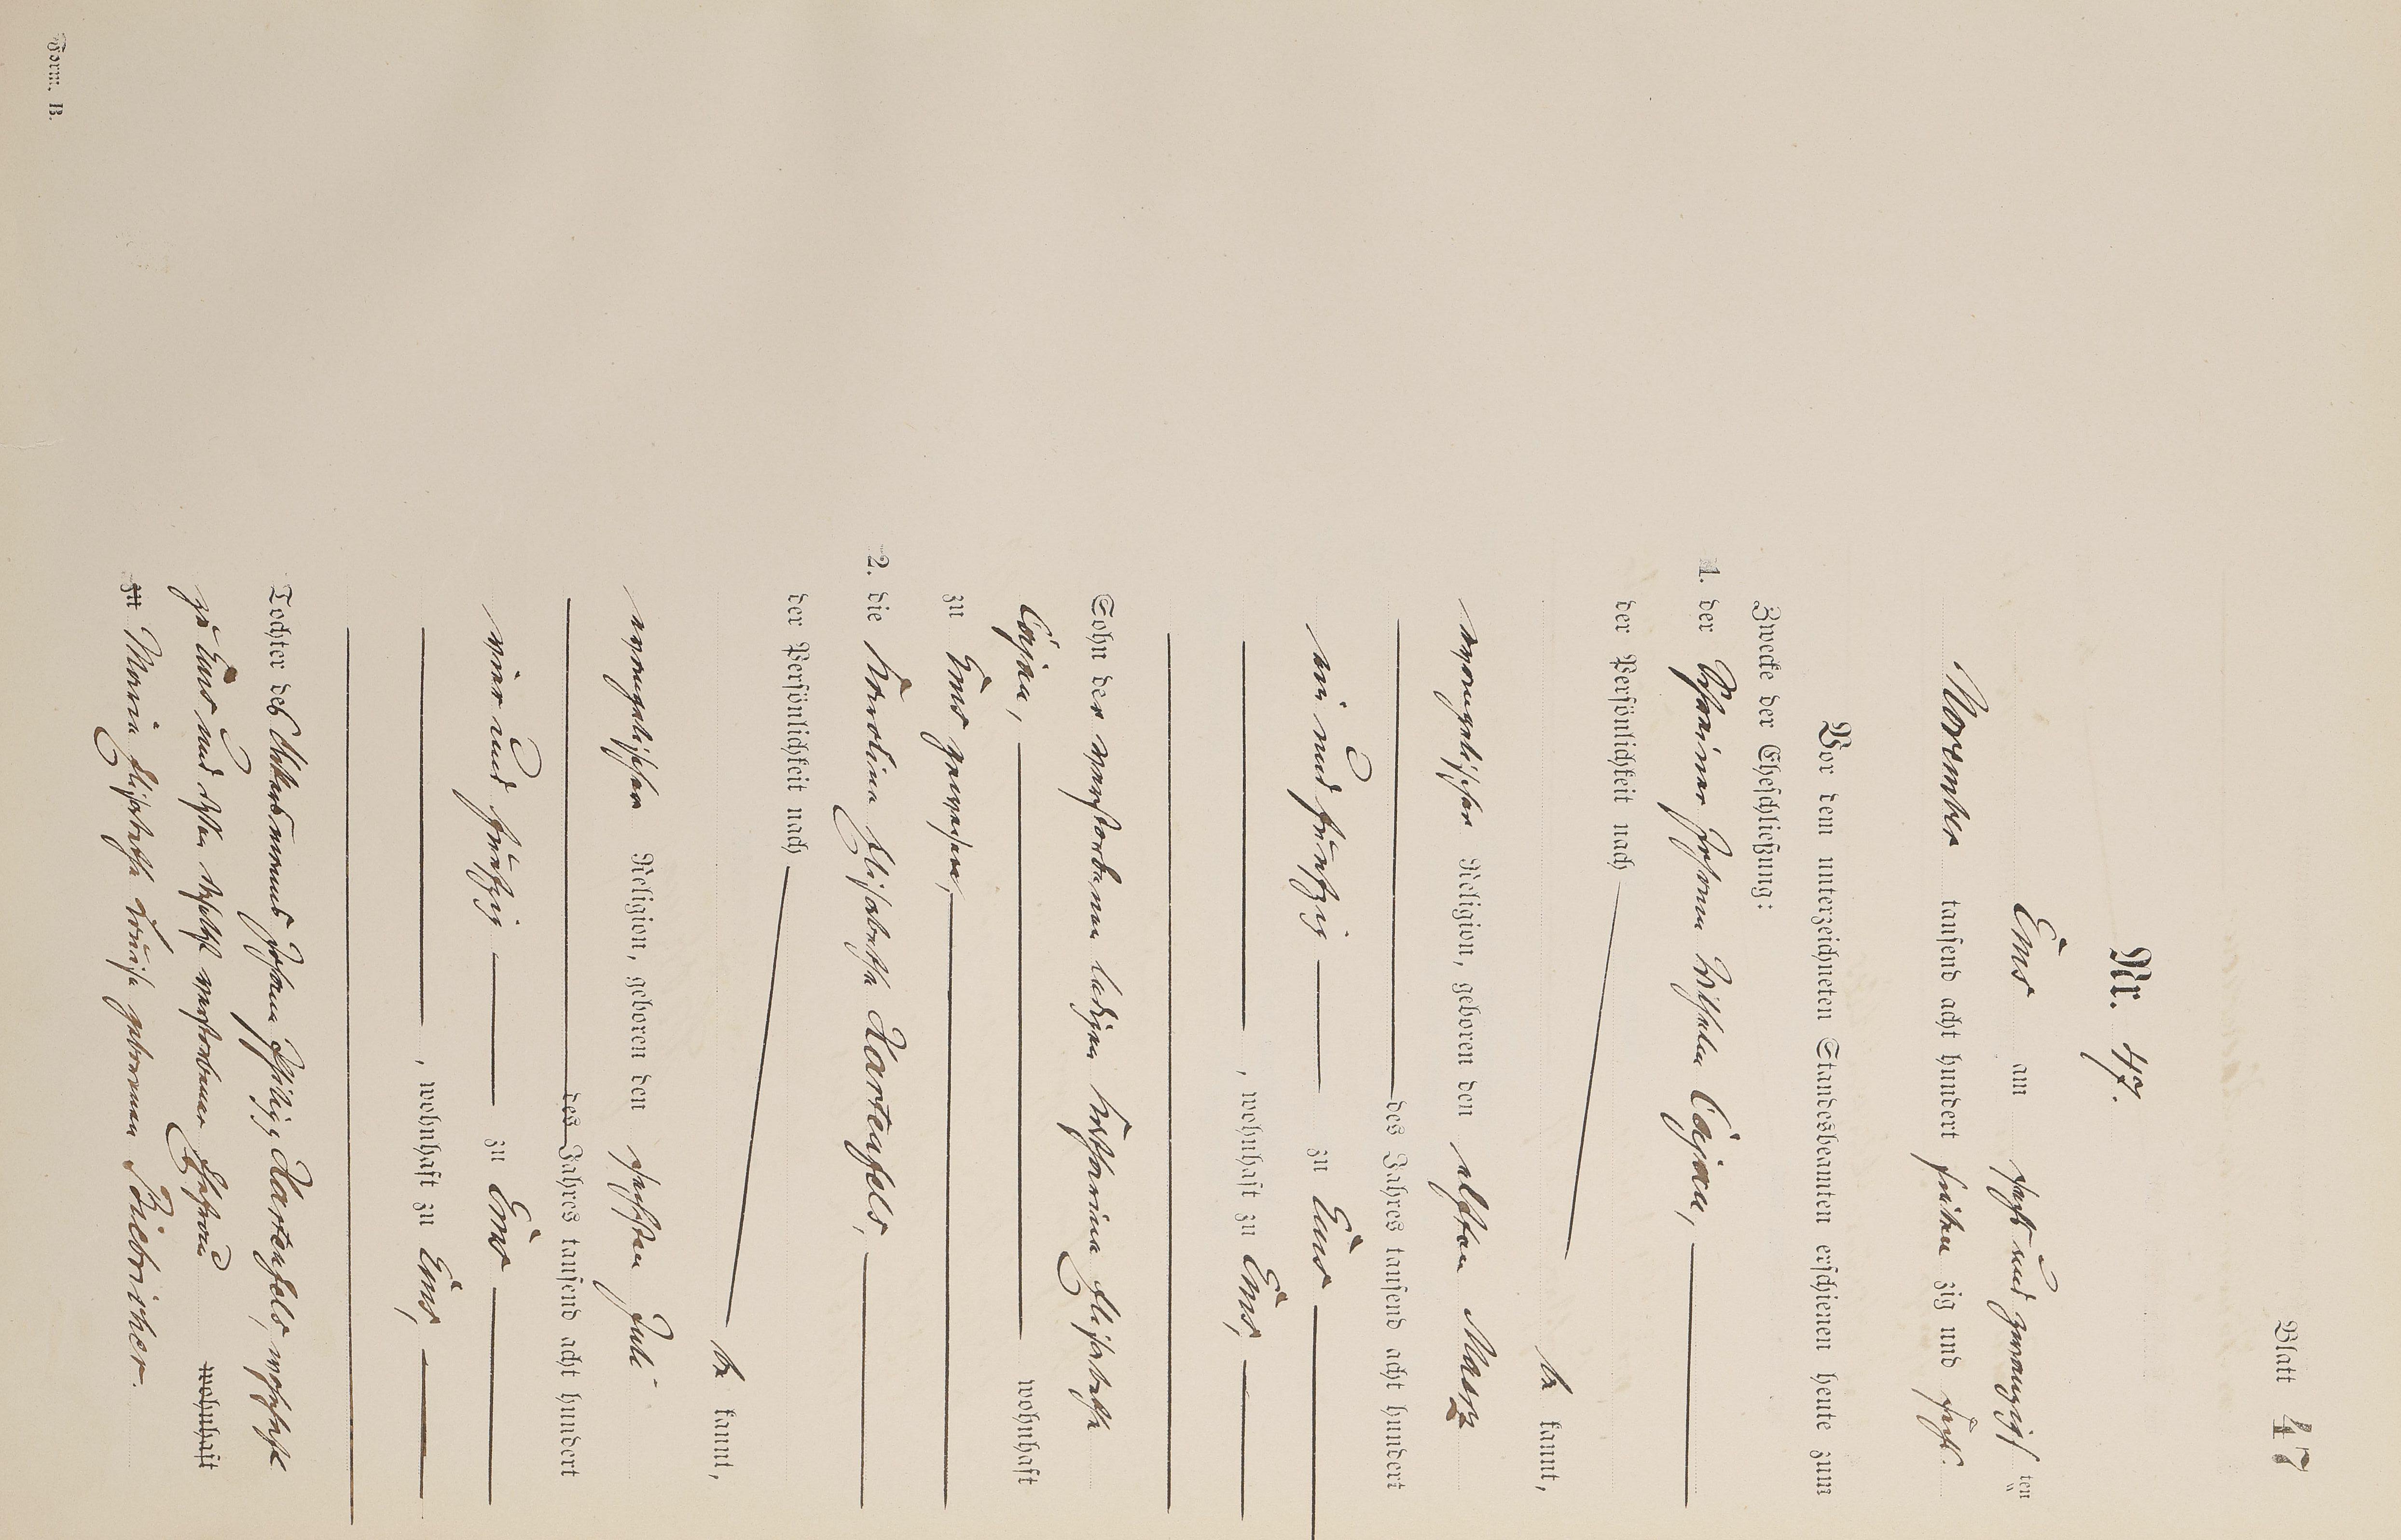 Blatt 47
Nr. 47.
Ems am sechs und zwanzigsten
November tausend acht hundert sieben zig und sechs.
Vor dem unterzeichneten Standesbeamten erschienen heute zum
Zwecke der Eheschließung:
1. der Schreiner Johann Wilhelm
der Persönlichkeit nach
be kannt,
evangelischer Religion, geboren den elften März
des Jahres tausend acht hundert
ein und fünfzig zu Ems
, wohnhaft zu Ems,
Sohn der verstorbenen ledigen Katharina Elisabetha
wohnhaft
zu Ems gewesen,
2. die Karolina Elisabetha Hartenfels,
der Persönlichkeit nach
be kannt,
evangelischer Religion, geboren den sechsten Juli
des Jahres tausend acht hundert
vier und fünfzig zu Ems
, wohnhaft zu Ems,
Tochter des Johann Philipp Hartenfels, wohnhaft
zu Ems und dessen daselbst verstorbener Ehefrau wohnhaft
zu Maria Elisabetha Louise geborenen Biebricher.
Form. B.